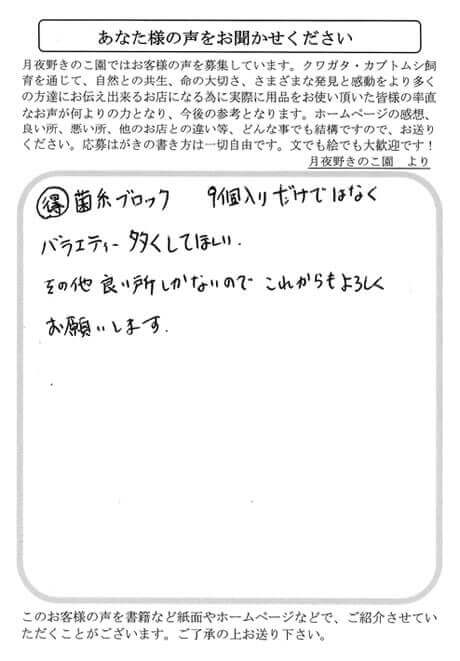 あなた様の声をお聞かせください
月夜野きのこ園ではお客様の声を募集しています。クワガタ・カブトムシ飼
育を通じて、自然との共生、命の大切さ、さまざまな発見と感動をより多く
の方達にお伝え出来るお店になる為に実際に用品をお使い頂いた皆様の率直
なお声が何よりの力となり、今後の参考となります。ホームページの感想、
良い所、悪い所、他のお店との違い等、どんな事でも結構ですので、お送り
ください。応募はがきの書き方は一切自由です。文でも絵でも大歓迎です！
月夜野きのこ園　より
得 菌糸ブロック　9個入りだけではなく
バラエティー多くしてほしい.
その他 良い所しかないので これからもよろしく
お願いします.
このお客様の声を書籍など紙面やホームページなどで、ご紹介させてい
ただくことがございます。ご了承の上お送り下さい。